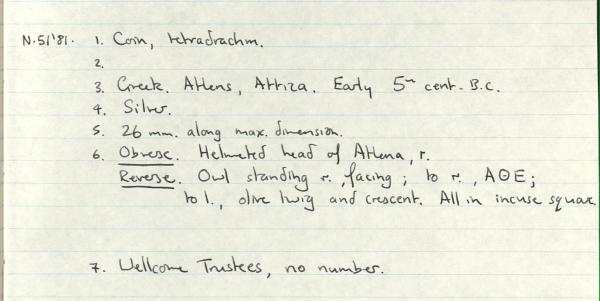 N.51'81. 1. Coin, tetradrachm.
2.
3. Greek. Athens, Attica. Early 5th cent. B.C.
4. Silver.
5. 26 mm. along max. dimension.
6. Obverse. Helmeted head of Athena, r.
Reverse. Owl standing r., facing; to r., ΑΘΕ;
to l., olive twig and crescent. All in incuse square
7. Wellcome Trustees, no number.